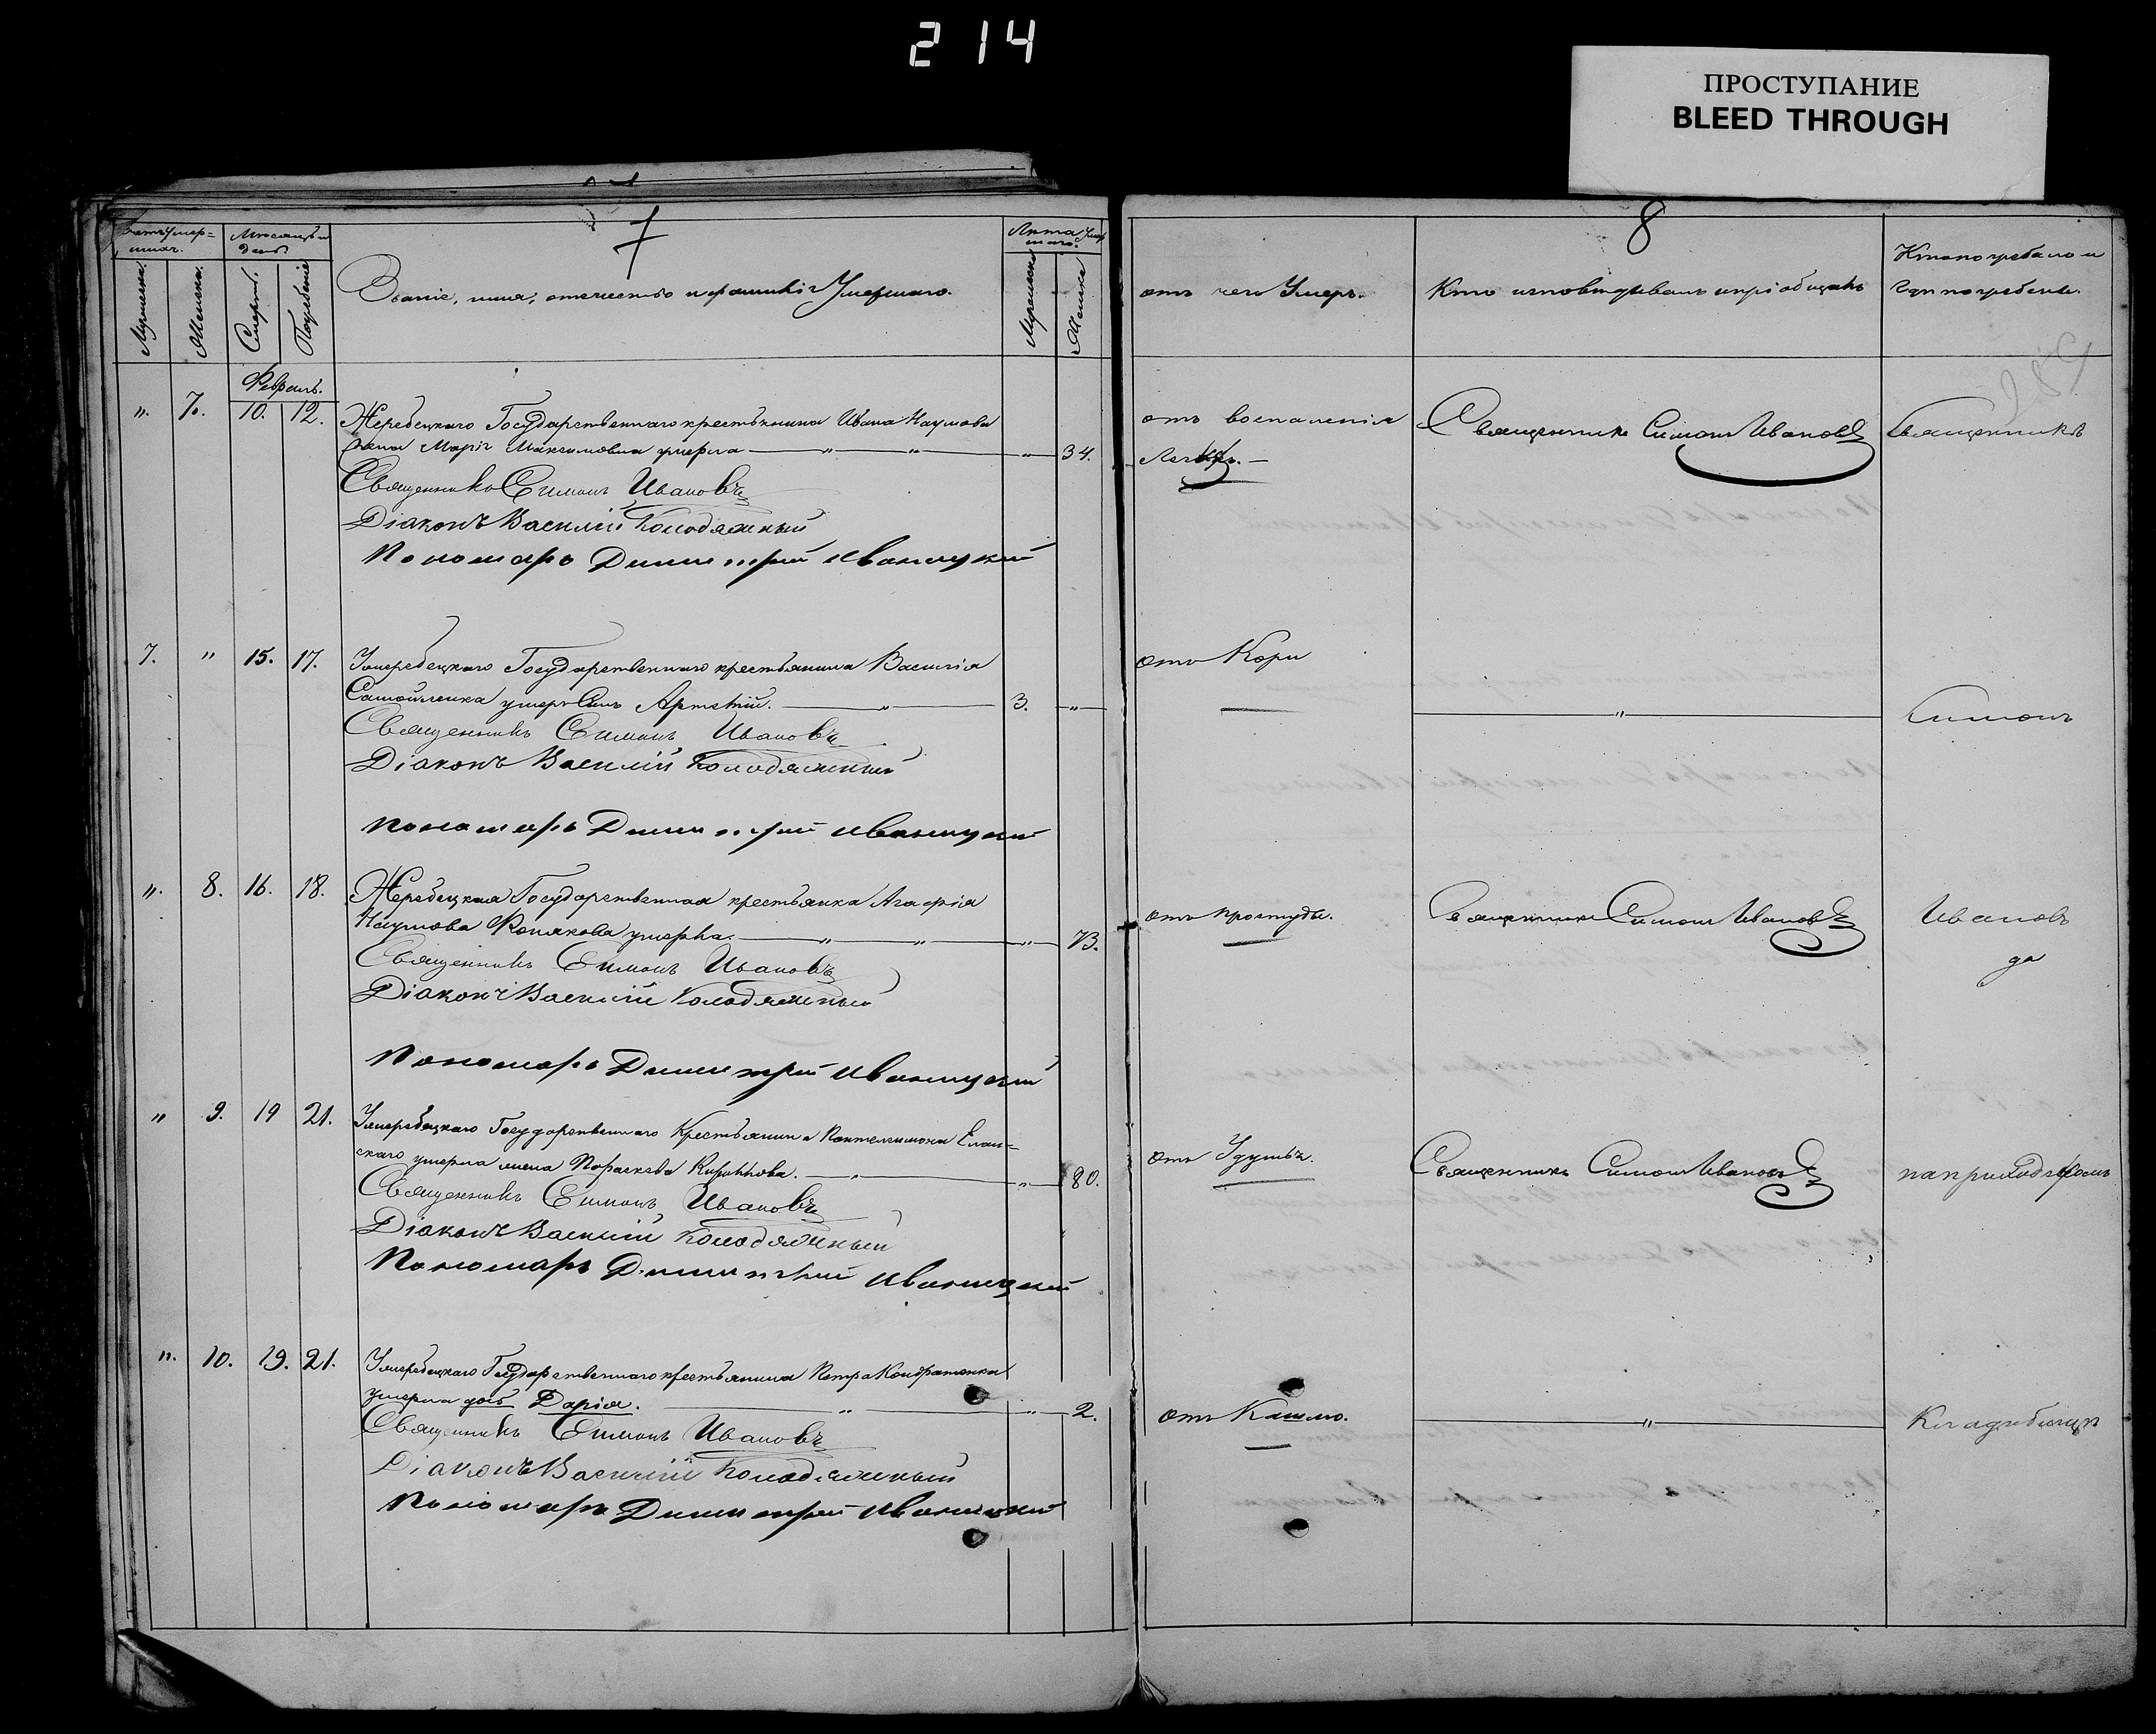 214
ПРОСТУПАНИЕ
BLEED THROUGH
7
Счетъ умер-
шихъ.
Мѣсяцъ и
день
Лѣта Умер
шаго.
Мужеска.
Женска.
Смерть.
Погребенія
Званіе, имя, отечество и фамилія Умершаго.
Мужеска
Женска
Февраль.
". 7. 10. 12. Жеребецкаго Государственнаго крестьянина Ивана Наумова
жена Марія Максимовна умерла — " — " — " — 34.
Священникъ Симонъ Ивановъ
Діаконъ Василій Колодяжный
Пономарь Димитрій Иваницкій
7. " 15. 17. Жеребецкаго Государственнаго крестьянина Василія
Самойленка умеръ Сынъ Артемій. — " — 3. — " —
Священникъ Симонъ Ивановъ
Діаконъ Василій Колодяжный
Пономарь Димитрій Иваницкій
". 8. 16. 18. Жеребецкая Государственная крестьянка Агафія
Наумова умерла. — " — " — " — 73.
Священникъ Симонъ Ивановъ
Діаконъ Василій Колодяжный
Пономарь Димитрій Иваницкій
" 9. 19 21. Жеребецкаго Государственнаго Крестьянина Пантелеимона Елан-
скаго умерла жена Параскева Кирилова. — " — " — 80.
Священникъ Симонъ Ивановъ
Діаконъ Василій Колодяжный
Пономарь Димитрій Иваницкій
". 10. 19. 21. Жеребецкаго Государственнаго крестьянина Петра Кондратенка
умерла дочь Дарія. — " — " — 2.
Священникъ Симонъ Ивановъ
Діаконъ Василій Колодяжный
Пономарь Димитрій Иваницкій
8
отъ чего Умеръ.
Кто исповѣдывалъ и пріобщалъ
Кто погребалъ и
гдѣ погребены.
отъ воспаленія Священникъ Симонъ Ивановъ Священникъ
Легкихъ. —
отъ Кори
— " — Симонъ
отъ простуды. Священникъ Симонъ Ивановъ Ивановъ
на
отъ Удушья. Священникъ Симонъ Ивановъ приходскомъ
отъ Кашлю. — " — Кладбищѣ